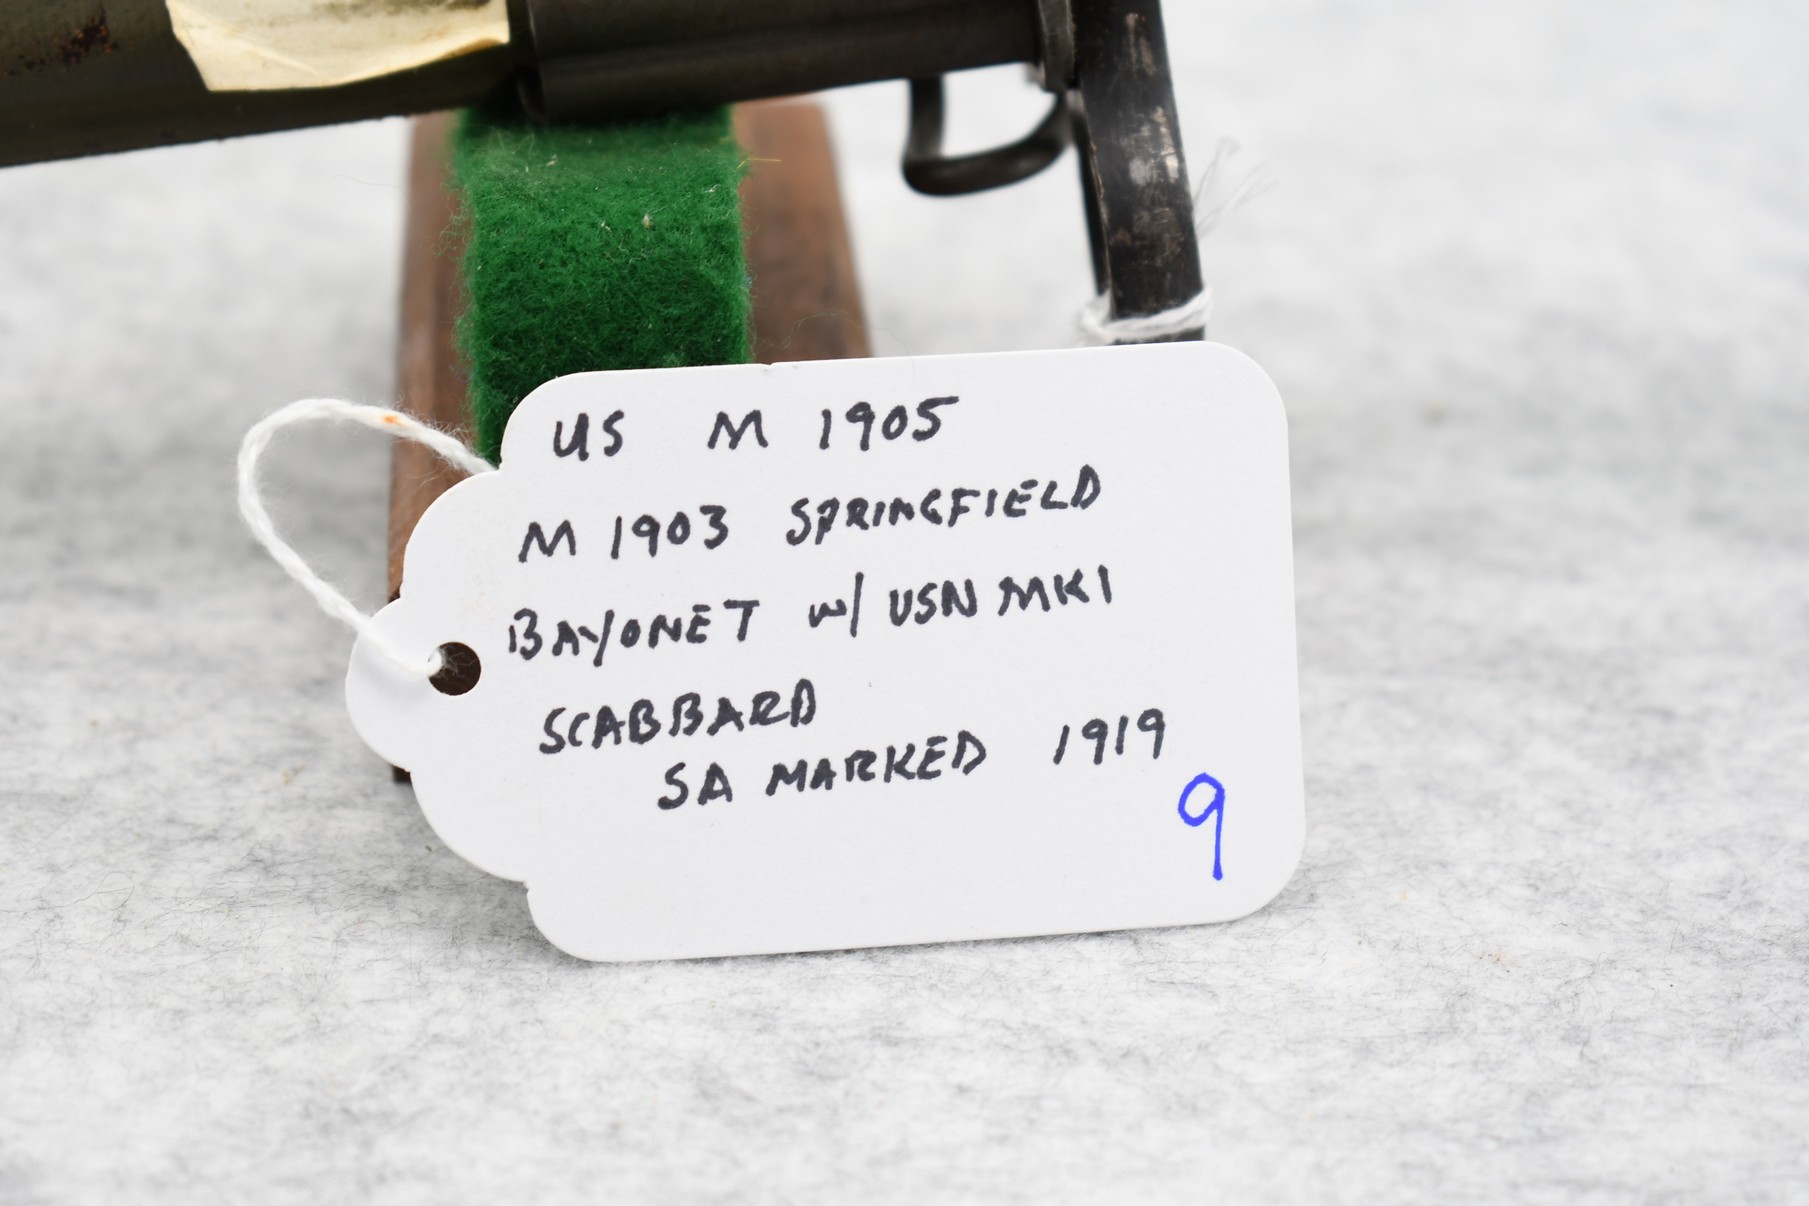 US M 1905
M 1903 SPRINGFIELD
BAYONET W/ USN MK1
SCABBARD
SA MARKED 1919
9